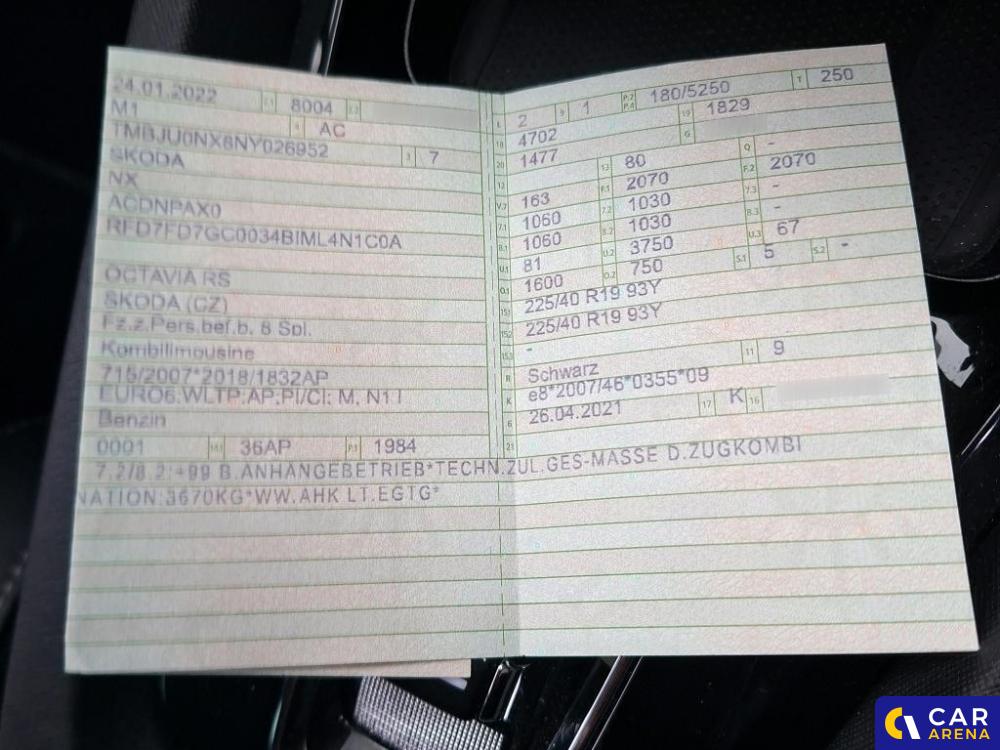 24.01.2022 2.1 8004 2.2 L 2 9 1 P.2 P.4 180/5250 T 250
M1 4 AC 18 4702 19 1829
TMBJU0NX8NY026952 3 7 20 1477 G
SKODA 12 13 80 Q -
NX V.7 163 F.1 2070 F.2 2070
ACDNPAX0 7.1 1060 7.2 1030 7.3 -
RFD7FD7GC0034BIML4N1C0A 8.1 1060 8.2 1030 8.3 -
U.1 81 U.2 3750 U.3 67
OCTAVIA RS O.1 1600 O.2 750 S.1 5 S.2 -
SKODA (CZ) 15.1 225/40 R19 93Y
Fz.z.Pers.bef.b. 8 Spl. 15.2 225/40 R19 93Y
Kombilimousine 15.3 -
715/2007*2018/1832AP R Schwarz 11 9
EURO6;WLTP;AP;PI/CI; M, N1 I K e8*2007/46*0355*09
Benzin 6 26.04.2021 17 K 16
0001 14.1 36AP P.1 1984 21
7.2/8.2:+99 B.ANHÄNGEBETRIEB*TECHN.ZUL.GES-MASSE D.ZUGKOMBI
NATION:3670KG*WW.AHK LT.EGTG*
CAR
ARENA